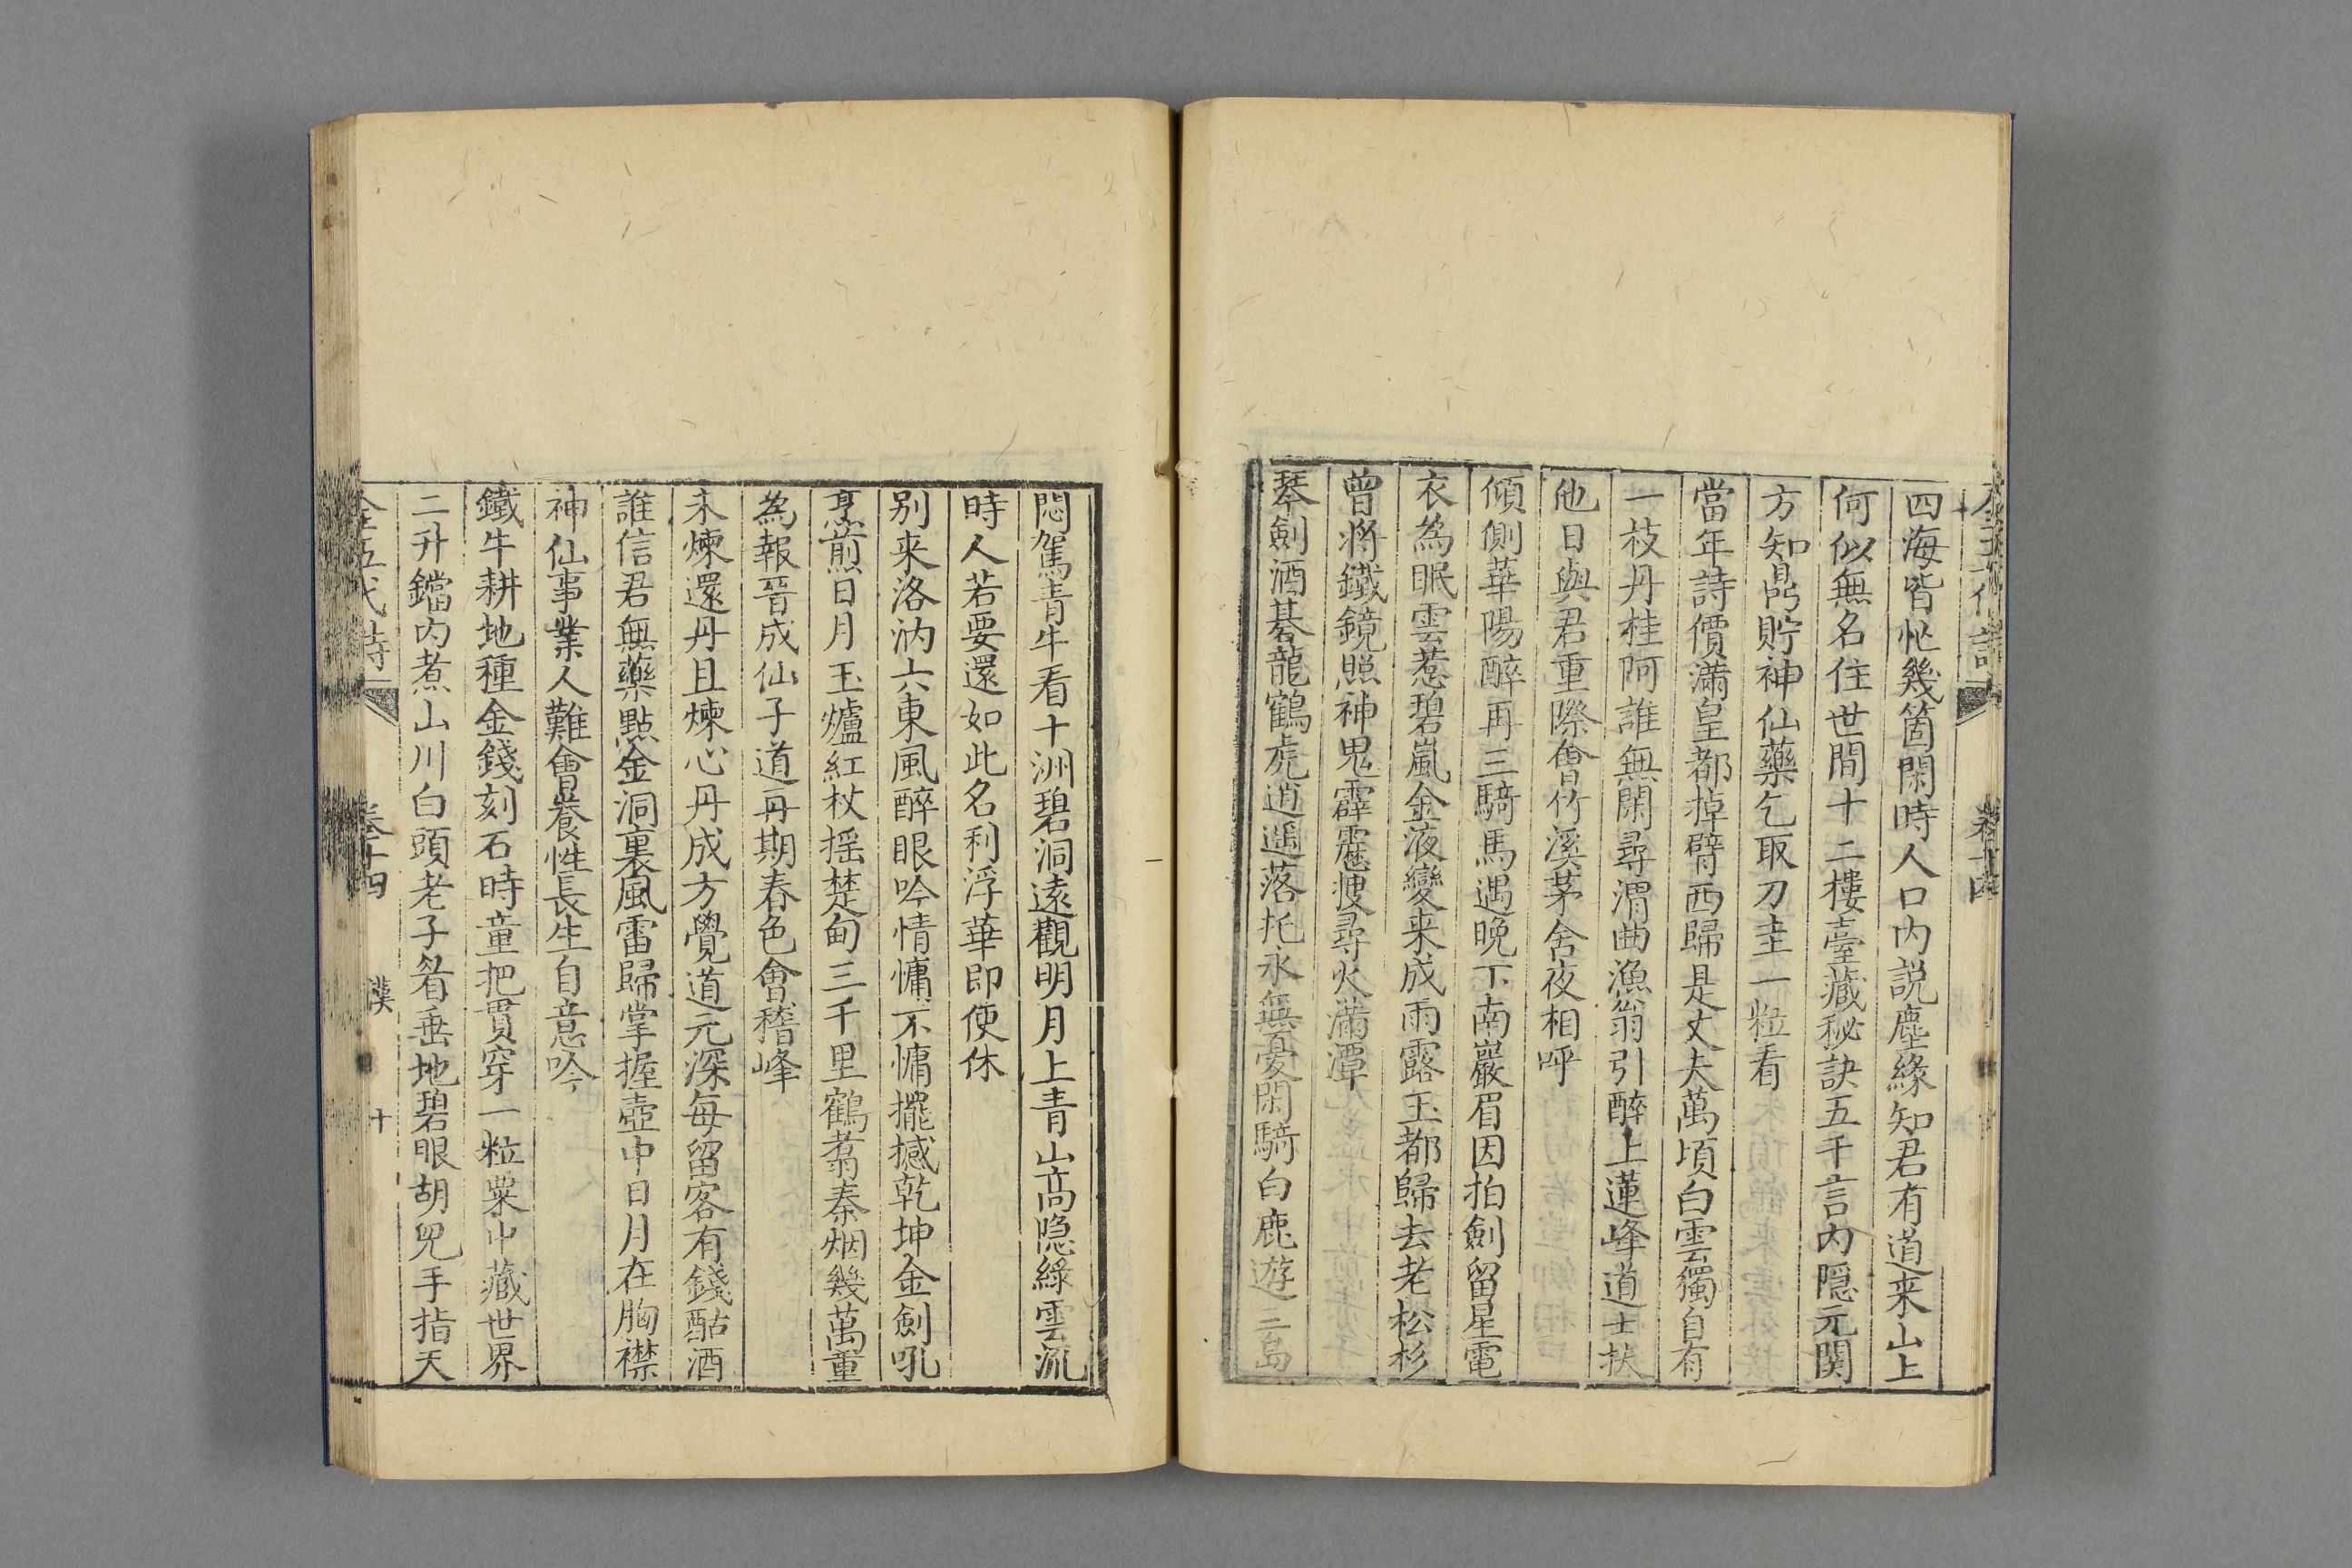 四海皆忙幾箇閑時人口內說塵緣知君有道来山上
何似無名住世間十二樓臺藏秘訣五千言內隱元関
方知鼎貯神仙藥乞取刀圭一粒看
當年詩價滿皇都掉臂西歸是丈夫萬頃白雲獨自有
一枝丹桂阿誰無閑尋渭曲漁翁引醉上蓮峰道士扶
他日與君重際會竹溪茅舍夜相呼
傾側華陽醉再三騎馬遇晚下南巖眉因拍劍留星電
衣為眠雲惹碧嵐金液變来成雨露玉都歸去老松杉
曾將鐵鏡照神鬼霹靂搜尋火滿潭
琴劍酒棊龍鶴虎逍遥落托永無憂閑騎白鹿遊三島
悶駕青牛看十洲碧洞遠觀明月上青山高隐綠雲流
時人若要還如此名利浮華即便休
别来洛汭六東風醉眼吟情慵不慵擺撼乾坤金劍吼
烹煎日月玉爐紅杖摇楚甸三千里鶴翥秦烟幾萬重
為報晉成仙子道再期春色會稽峰
未煉還丹且煉心丹成方覺道元深每留客有錢酤酒
誰信君無藥點金洞裏風雷歸掌握壺中日月在胸襟
神仙事業人難會養性長生自意吟
鐵牛耕地種金錢刻石時童把貫穿一粒粟中藏世界
二升鐺內煮山川白頭老子眉垂地碧眼胡兒手指天
全五代詩 卷十四 漢 十